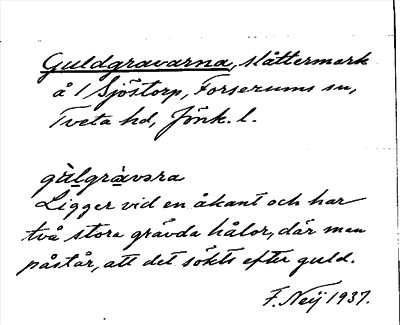 Guldgravarna, slåttermark
å 1 Sjöstorp, Forserums sn,
Tveta hd, Jönk. l.
gù̀lgrà̀vəra
Ligger vid en åkant och har
två stora grävda hålor, där man
påstår, att det sökts efter guld.
F. Neij 1937.